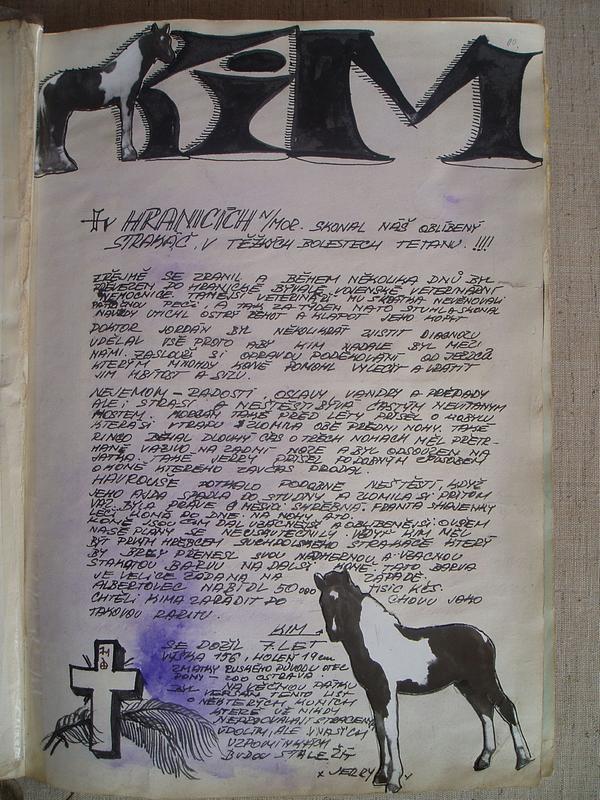 KiM
V HRANICÍCH N/MOR. SKONAL NÁŠ OBLÍBENÝ
STRAKÁČ V TĚŽKÝCH BOLESTECH TETANU. !!!!
ZŘEJMĚ SE ZRANIL A BĚHEM NĚKOLIKA DNŮ BYL
PŘEVEZEN DO HRANICKÉ BÝVALÉ VOJENSKÉ VETERINÁRNÍ
NEMOCNICE. TAMĚJŠÍ VETERINÁŘI MU ZKRÁTKA NEVĚNOVALI
PÉČI. A TAK ZA TÝDEN NATO SKONAL
NAVŽDY UTICHL OSTRÝ ŘEHOT A KLAPOT JEHO KOPYT
DOKTOR JORDÁN BYL NĚKOLIKRÁT ZJISTIT DIAGNOZU
UDĚLAL VŠE PROTO ABY KIM NADÁLE BYL MEZI
NÁMI. ZASLOUŽÍ SI OPRAVDU PODĚKOVÁNÍ OD JEZDCŮ
KTERÝM MNOHDY KONĚ POMOHL VYLÉČIT A VRÁTIT
JIM A SÍLU.
NEJENOM - RADOSTI OSLAVY VANDRY A
ALE I STRASTI A NEŠTĚSTÍ BÝVÁ ČASTÝM NEVÍTANÝM
HOSTEM. MORGAN TAKÉ PŘED LÉTY PŘIŠEL O KOBYLU
KTERÁ SI V ZLOMILA OBĚ PŘEDNÍ NOHY. TAKÉ
RINGO BĚHAL DLOUHÝ ČAS O TŘECH NOHÁCH MĚL PŘETR-
HANÉ VAZIVO NA ZADNÍ NOZE A BYL ODSOUZEN NA
JATKA. TAKÉ JERRY PŘIŠEL PODOBNÝM ZPŮSOBEM
O KONĚ KTERÉHO ZAVČAS PRODAL.
POTKALO PODOBNÉ NEŠTĚSTÍ, KDYŽ
JEHO SPADLA DO STUDNY A ZLOMILA SI PŘITOM
VAZ. BYLA PRÁVĚ FRANTA
KONĚ DO DNE. NA NOHY
KONĚ JSOU ČÍM DÁL VZÁCNĚJŠÍ A OBLÍBENĚJŠÍ. OVŠEM
NAŠE PLÁNY SE NEUSKUTEČNILY. VŽDYŤ KIM MĚL
BÝT PRVNÍM HŘEBCEM STRAKÁČE KTERÝ
BY BRZY PŘENESL SVOU NÁDHERNOU A VZÁCNOU
STRAKATOU BARVU NA DALŠÍ KONĚ. TATO BARVA
JE VELICE ŽÁDANÁ NA ZÁPADĚ.
ALBERTOVEC NABÍDL 50 000 TISÍC KČS.
CHTĚLI KIMA ZAŘADIT DO CHOVU JAKO
TAKOVOU RARITU.
KIM
SE DOŽIL 7 LET
VÝŠKA 156, HOLEŇ 19 cm
Z MATKY RUSKÉHO PŮVODU OTEC
PONY - ZOO OSTRAVA.
BYL NA VĚČNOU PAMÁTKU
TENTO LIST
O NĚKTERÝCH KONÍCH
KTERÉ UŽ NIKDY
NEPROCVÁLAJÍ STRACENÝM
ÚDOLÍM, ALE V NAŠICH
VZPOMÍNKÁCH
BUDOU STÁLE ŽÍT
x JERRY